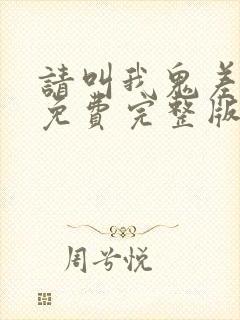 請叫我鬼差
免費完整版
周兮悦